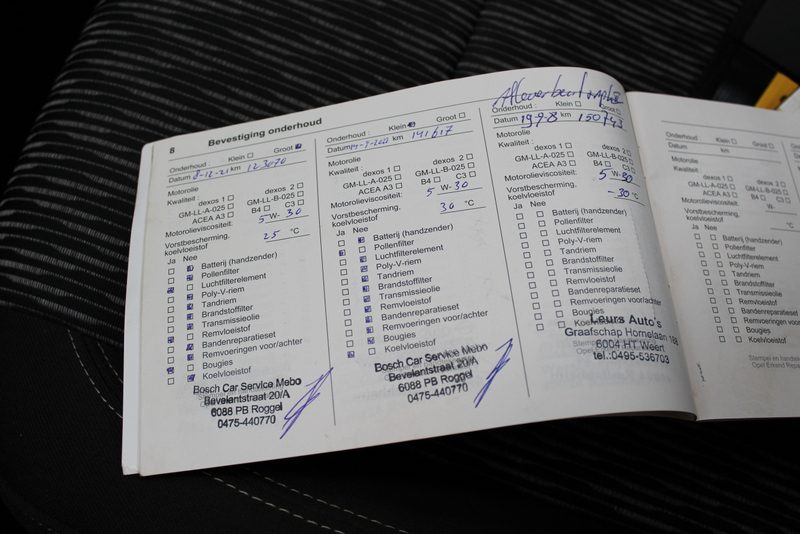 8 Bevestiging onderhoud
Onderhoud : Klein Groot
Datum 8-12-21 km 123070
Motorolie
Kwaliteit : dexos 1 dexos 2
GM-LL-A-025 GM-LL-B-025
ACEA A3 B4 C3
Motorolieviscositeit: 5 W- 30
Vorstbescherming,
koelvloeistof 25 °C
Ja Nee
Batterij (handzender)
Pollenfilter
Luchtfilterelement
Poly-V-riem
Tandriem
Brandstoffilter
Transmissieolie
Remvloeistof
Bandenreparatieset
Remvoeringen voor/achter
Bougies
Koelvloeistof
Bosch Car Service Mebo
Bevelantstraat 20/A
6088 PB Roggel
0475-440770
Onderhoud : Klein Groot
Datum km 141617
Motorolie
Kwaliteit : dexos 1 dexos 2
GM-LL-A-025 GM-LL-B-025
ACEA A3 B4 C3
Motorolieviscositeit: 5 W- 30
Vorstbescherming,
koelvloeistof 30 °C
Ja Nee
Batterij (handzender)
Pollenfilter
Luchtfilterelement
Poly-V-riem
Tandriem
Brandstoffilter
Transmissieolie
Remvloeistof
Bandenreparatieset
Remvoeringen voor/achter
Bougies
Koelvloeistof
Bosch Car Service Mebo
Bevelantstraat 20/A
6088 PB Roggel
0475-440770
Onderhoud : Klein Groot
Datum 19-9-8 km 150743
Motorolie
Kwaliteit : dexos 1 dexos 2
GM-LL-A-025 GM-LL-B-025
ACEA A3 B4 C3
Motorolieviscositeit: 5 W- 30
Vorstbescherming,
koelvloeistof - 30 °C
Ja Nee
Batterij (handzender)
Pollenfilter
Luchtfilterelement
Poly-V-riem
Tandriem
Brandstoffilter
Transmissieolie
Remvloeistof
Bandenreparatieset
Remvoeringen voor/achter
Bougies
Leurs Auto's
Graafschap Hornelaan 188
6004 HT Weert
tel.:0495-536703
Onderhoud : Klein Groot
Datum km
Motorolie
Kwaliteit : dexos 1 dexos 2
GM-LL-A-025 GM-LL-B-025
ACEA A3 B4 C3
Motorolieviscositeit: W-
Vorstbescherming,
koelvloeistof °C
Ja Nee
Batterij (handzender)
Pollenfilter
Luchtfilterelement
Poly-V-riem
Tandriem
Brandstoffilter
Transmissieolie
Remvloeistof
Bandenreparatieset
Remvoeringen voor/achter
Bougies
Koelvloeistof